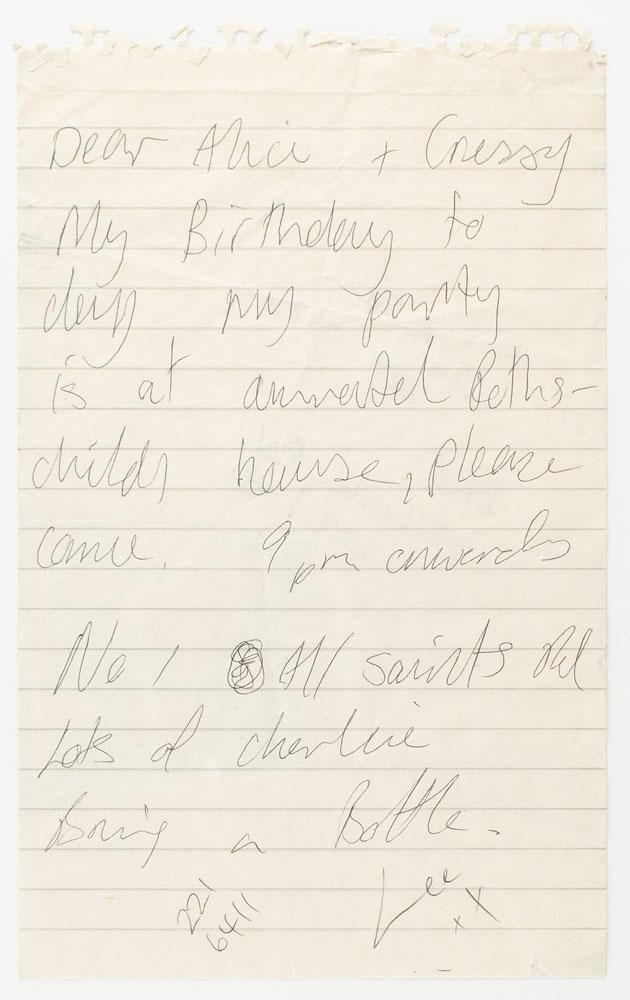 Dear Alice + Cressy
My Birthday to
day my party
is at Roths-
childs house, please
come. 9 pm onwards
No 1 All saints Rd
Lots of charlie
Bring a Bottle.
Lee xx
221
6411